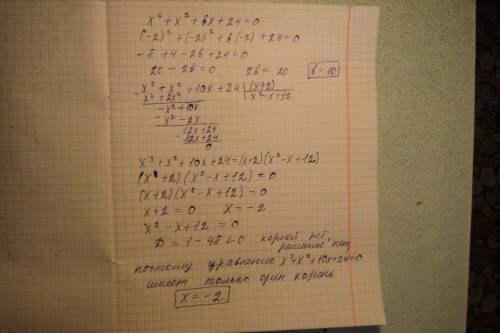 x³ + x² + bx + 24 = 0
(-2)³ + (-2)² + b(-2) + 24 = 0
-8 + 4 - 2b + 24 = 0
20 - 2b = 0 2b = 20 b = 10
x³ + x² + 10x + 24 | (x+2)
x³ + 2x² x² - x + 12
-x² + 10x
-x² - 2x
12x + 24
12x + 24
0
x³ + x² + 10x + 24 = (x+2)(x² - x + 12)
(x + 2)(x² - x + 12) = 0
(x + 2)(x² - x + 12) = 0
x + 2 = 0 x = -2
x² - x + 12 = 0
D = 1 - 48 < 0 корней нет,
решенье нет
поэтому уравнение x³ + x² + 10x + 24 = 0
имеет только один корень
x = -2